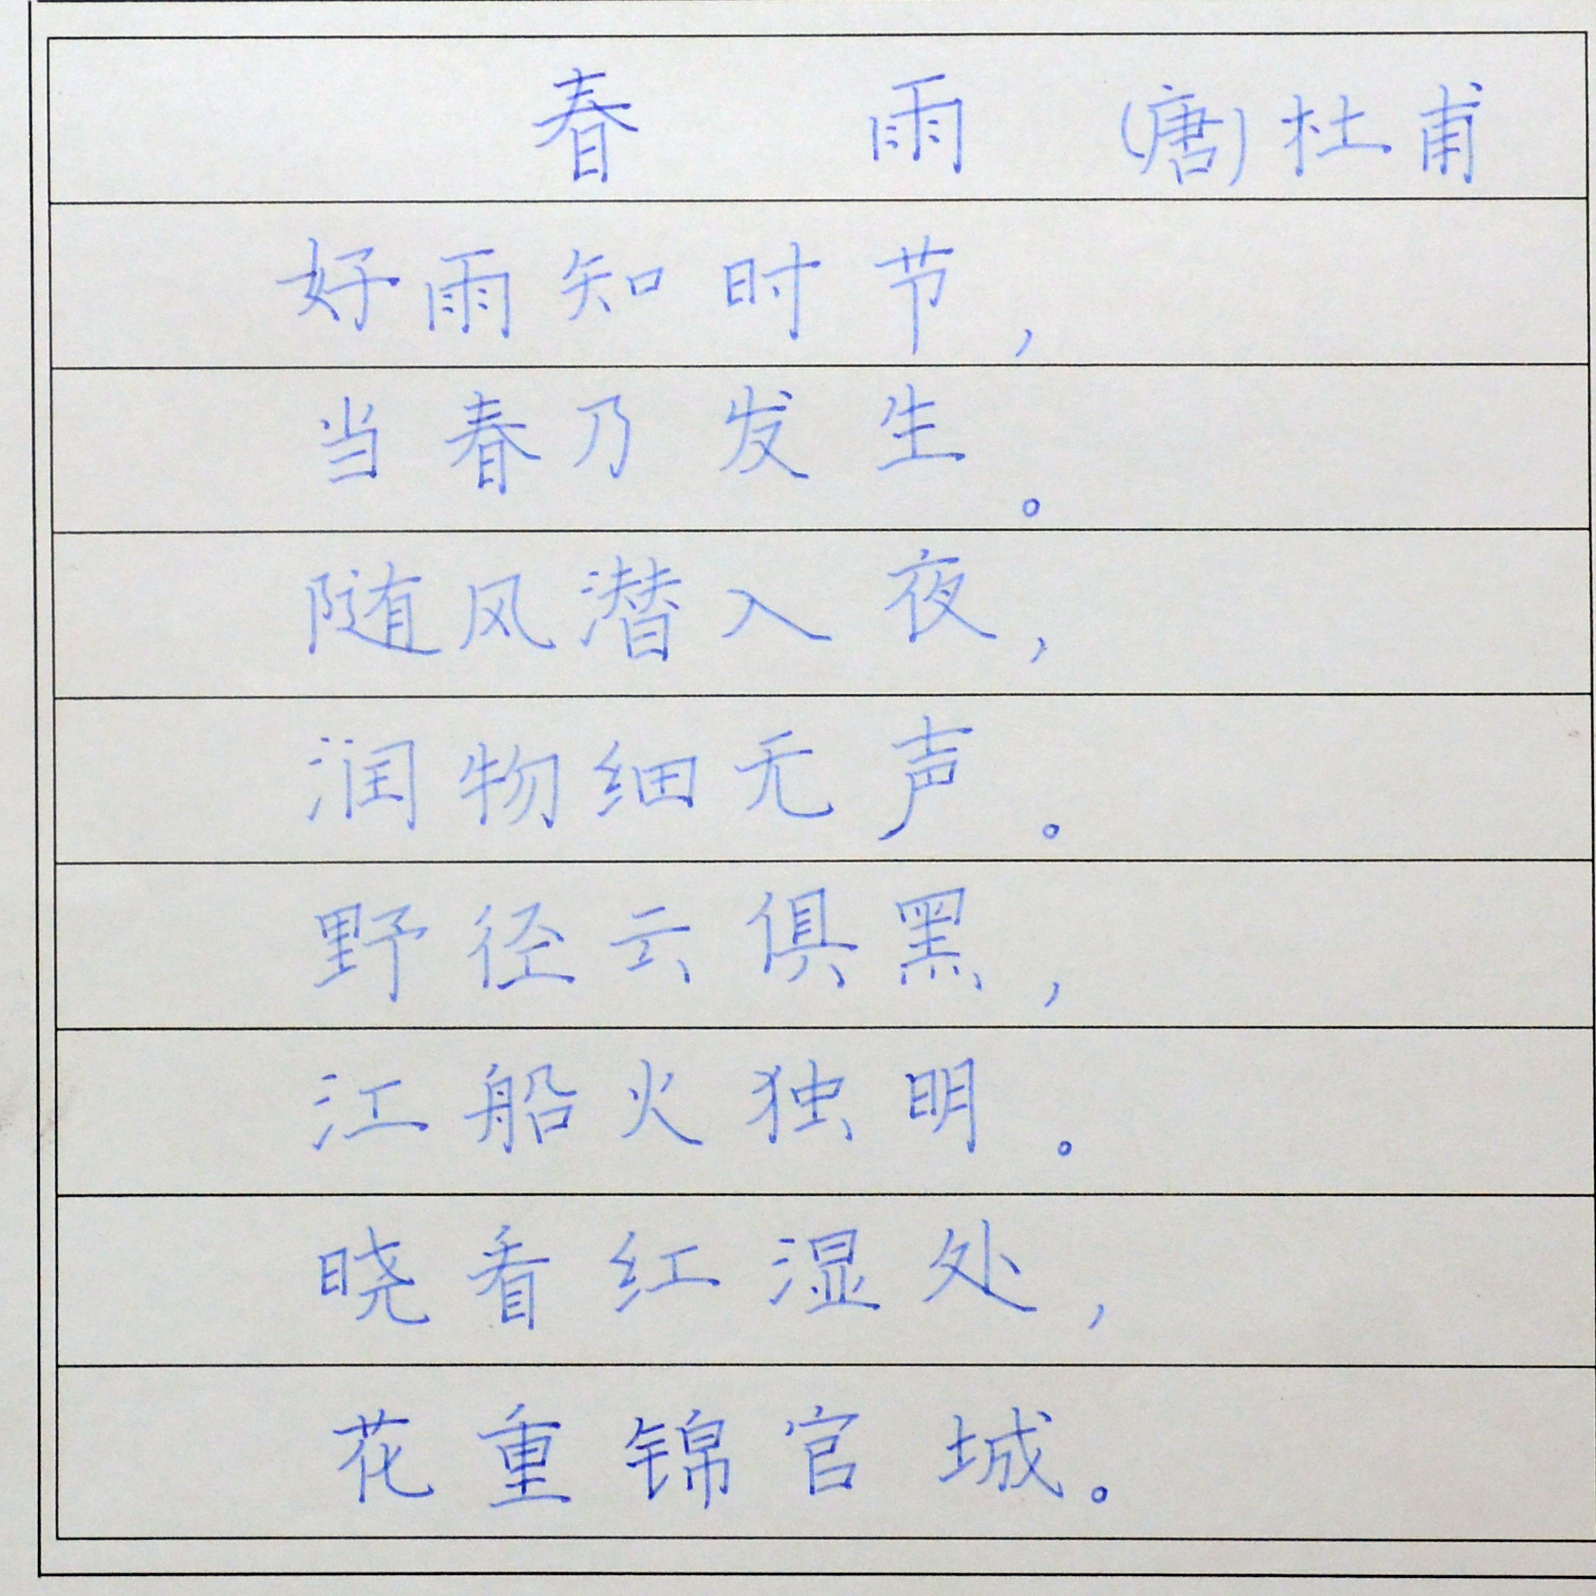 春 雨 (唐)杜甫
好雨知时节,
当春乃发生。
随风潜入夜,
润物细无声。
野径云俱黑,
江船火独明。
晓看红湿处,
花重锦官城。